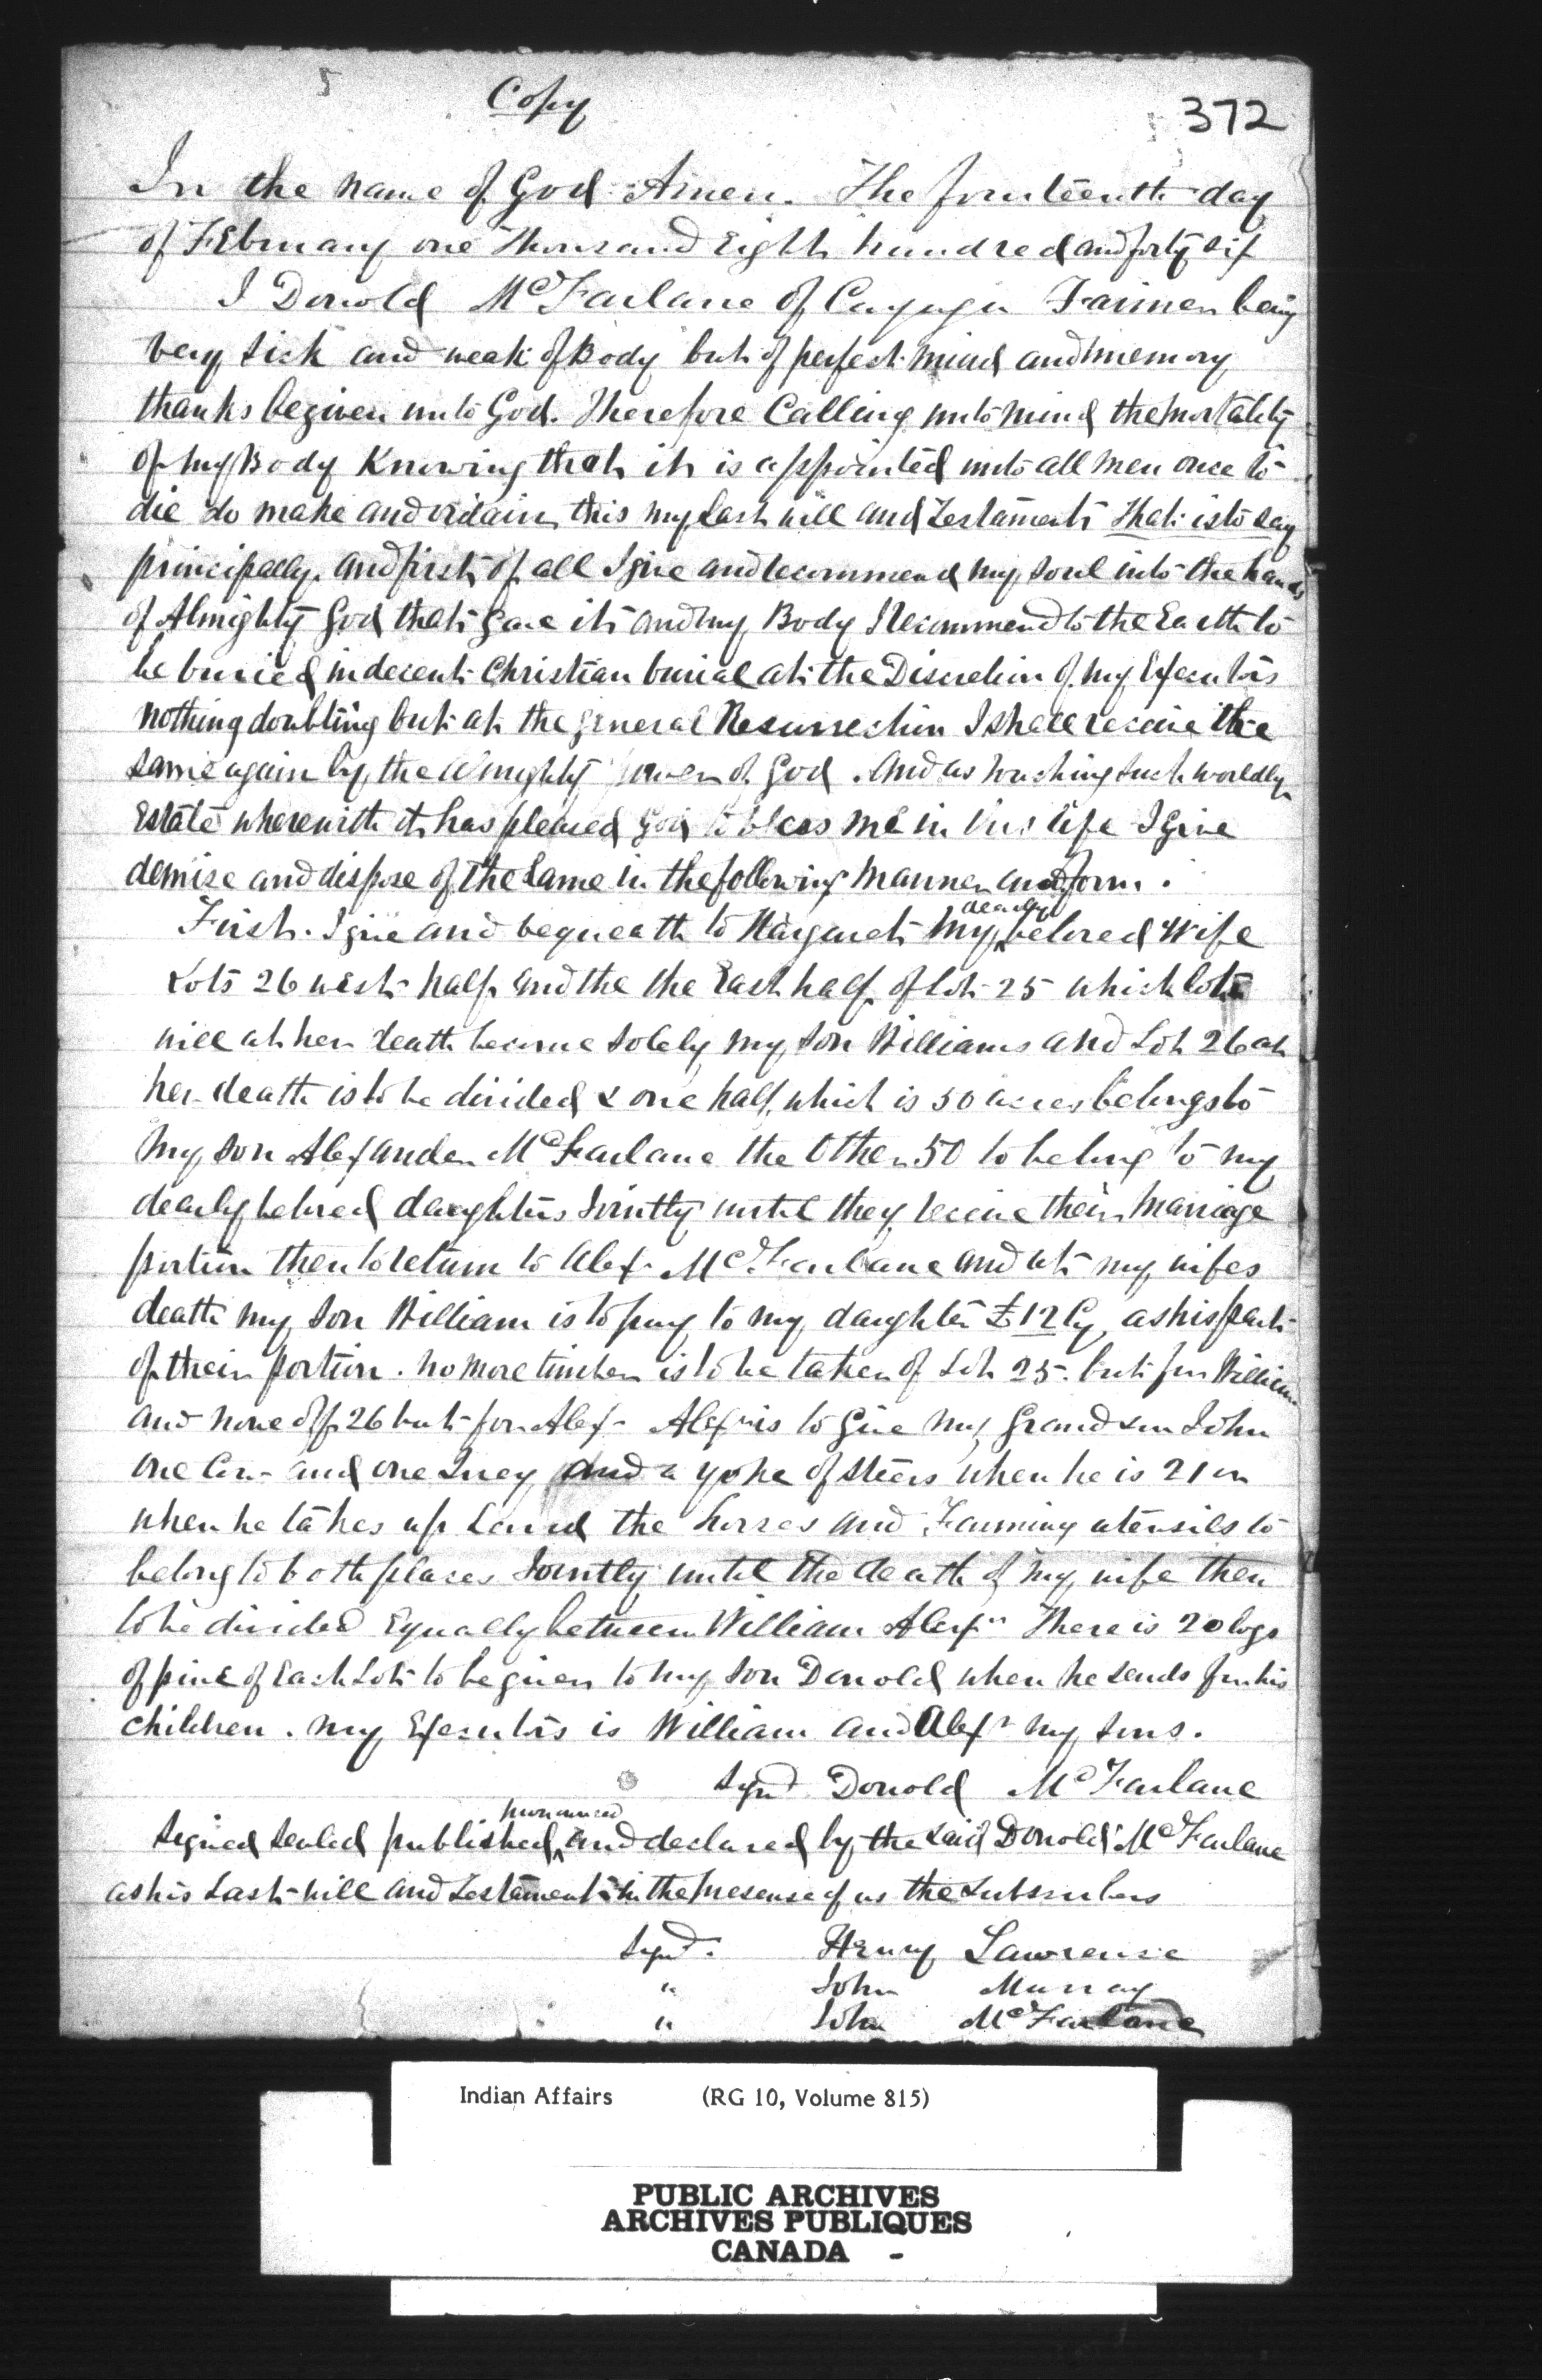 Copy
372
In the name of God Amen. The fourteenth day
of February one Thousand Eight hundred and forty six
I Donold McFarlane of Cayuga Farmer being
very sick and weak of Body but of perfect mind and memory
thanks be given unto God. Therefore Calling unto mind the mortality
of my Body Knowing that it is appointed unto all men once to
die do make and ordain this my Last will and Testament That is to say
principally and first of all I give and recommend my soul into the hands
of Almighty God that gave it and my Body I recommend to the Earth to
be buried in decent Christian burial at the Discretion of my Executors
nothing doubting but at the general Resurrection I shall receive the
same again by the almighty power of God. And as touching such worldly
Estate wherewith it has pleased God to bless me in this life I give
demise and dispose of the same in the following manner and form.
First. I give and bequeath to Margaret my dearly beloved Wife
Lots 26 west half and the the East half of Lot 25 which lots
will at her death become solely my son Williams and Lot 26 at
her death is to be divided & one half which is 50 acres belongs to
my son Alexander McFarlane the Other 50 to belong to my
dearly beloved daughters Jointly until they receive their marriage
portion then to return to Alex. McFarlane and at my wifes
death my son William is to pay to my daughter £12 Cy as his part
of their portion. no more timber is to be taken of Lot 25 but for William
and none off 26 but for Alex. Alexr is to give my Grand son John
one Cow and one and a yoke of steers when he is 21 or
when he takes up Land the horses and Farming utensils to
belong to both places Jointly until the death of my wife then
to be divided Equally between William Alexr There is 20 logs
of pine of Each Lot to be given to my son Donold when he sends for his
children. my Executors is William and Alexr my sons.
Signd Donold McFarlane
Signed sealed published pronounced and declared by the said Donold McFarlane
as his Last will and Testament in the presense of us the subscribers
Signd. Henry Lawrense
" John Murray
" John McFarlane
Indian Affairs (RG 10, Volume 815)
PUBLIC ARCHIVES
ARCHIVES PUBLIQUES
CANADA